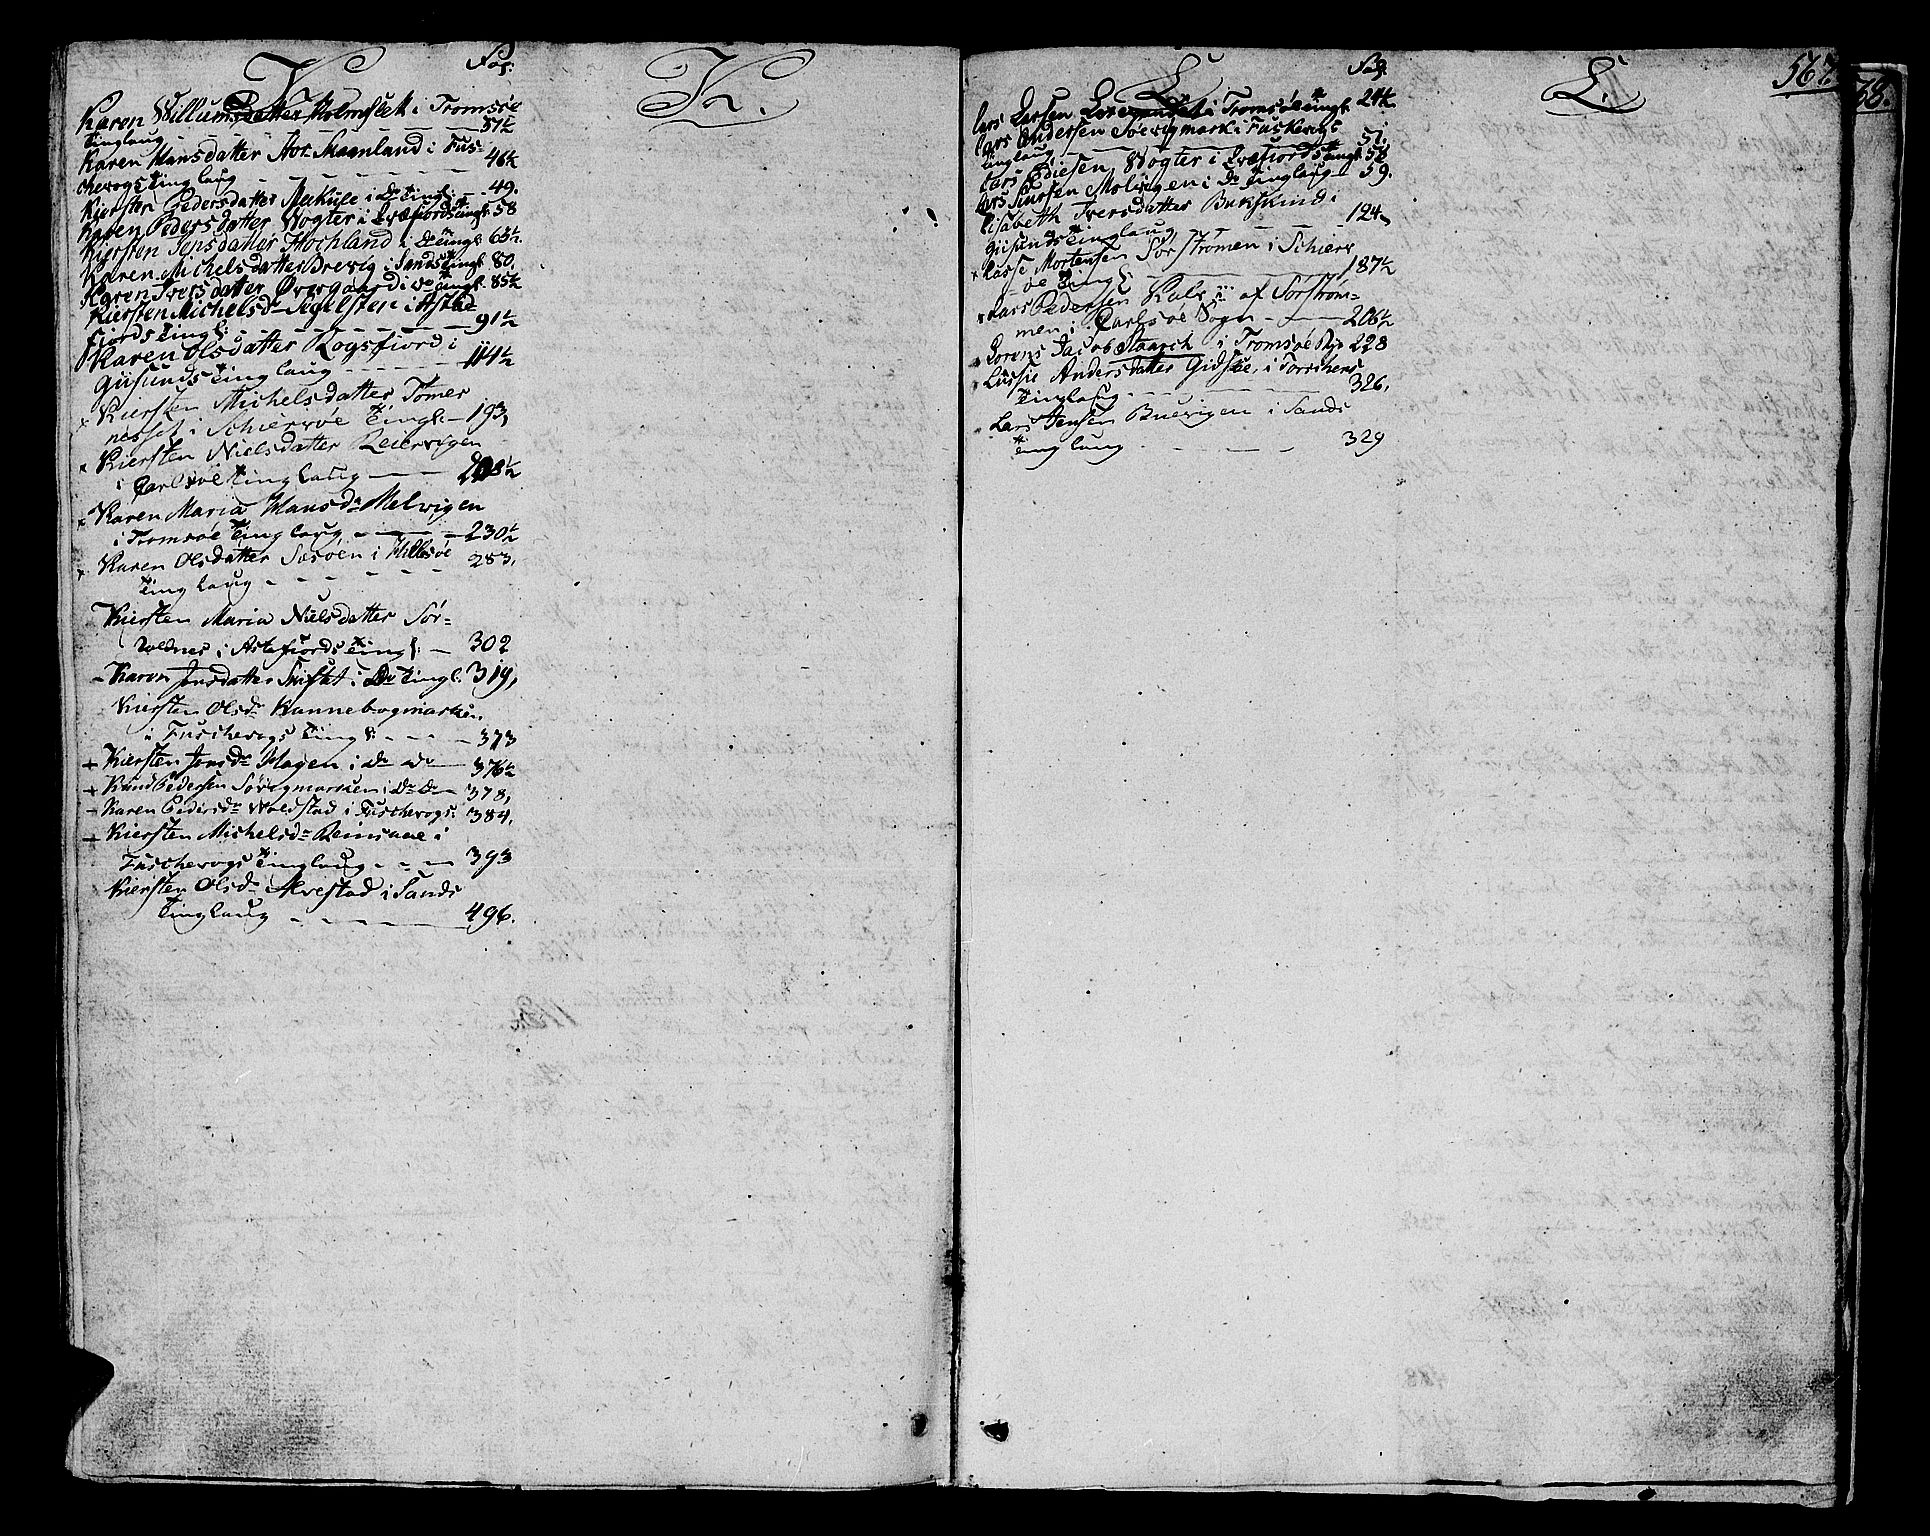 K. Pag:
Karen Willumsdatter Holmslet i Tromsöe
Tinglaug 37½
Karen Hansdatter Maanland i Fus-
chevogs Tinglaug 46½
Kiersten Pedersdatter i Do Tingl: 49.
Karen Pedersdatter Vogter i Qvæfiords Tingl: 58
Kiersten Jensdatter Hochland i Do Tingl: 63½.
Karen Michelsdatter Brevig i Sands Tingl: 80.
Karen Iversdatter Övergaard i Do Tingl: 85½
Kiersten Michelsd. i Astæ-
fiords Tingl: 91½
Karen Olsdatter Rogsfiord i
Giisunds Tinglaug 114½
Kiersten Michelsdatter Tömer
nesset i Schiervöe Tingl: 193
Kiersten Nielsdatter Reiervigen
i Carlsöe Tinglaug 208½
Karen Maria Hansdr Melvigen
i Tromsöe Tinglaug 230½
Karen Olsdatter i Hillesöe 283.
Tinglaug
Kiersten Maria Nielsdatter Sör-
Roldnes i Astafiords Tingl: 302
Karen Jonsdatter i Do Tingl. 319,
Kiersten Olsdr Kannebogmarken
i Fuschevogs Tingl: 373
Kiersten Jonsdr Hagen i do do 376½
Knud Pedersen Sörvigmarken i Do Do 378,
Karen Pedersdr Woldstad i Fuschevogs: 384.
Kiersten Michelsdr Reinsaae i
Fuschevogs Tinglaug 393
Kiersten Olsdr Alvestad i Sands
Tinglaug 496.
K.
L. Pag.
Lars Larsen i Tromsöe Tingl: 24½
Lars Andersen Sörvigmark i Fuskevogs
Tinglaug 51.
Lars Ediesen Vogter i Qvæfiords Tingl: 58
Lars Siursen Molvigen i Do Tinglaug 59.
Lisabeth Iversdatter Bukskind i
Giisunds Tinglaug 124
Lasse Mortensen Sörströmen i Schierv
öe Tingl: 187½
Lars Pedersen af Sörström-
men i Carlsöe Sogn 206½
Lorens Jacob Staarch i Tromsöe Bye 228
Lussie Andersdatter Gidskie, i Torschens
Tinglaug 326.
Lars Jensen Buevigen i Sands
Tinglaug 329
L.
567